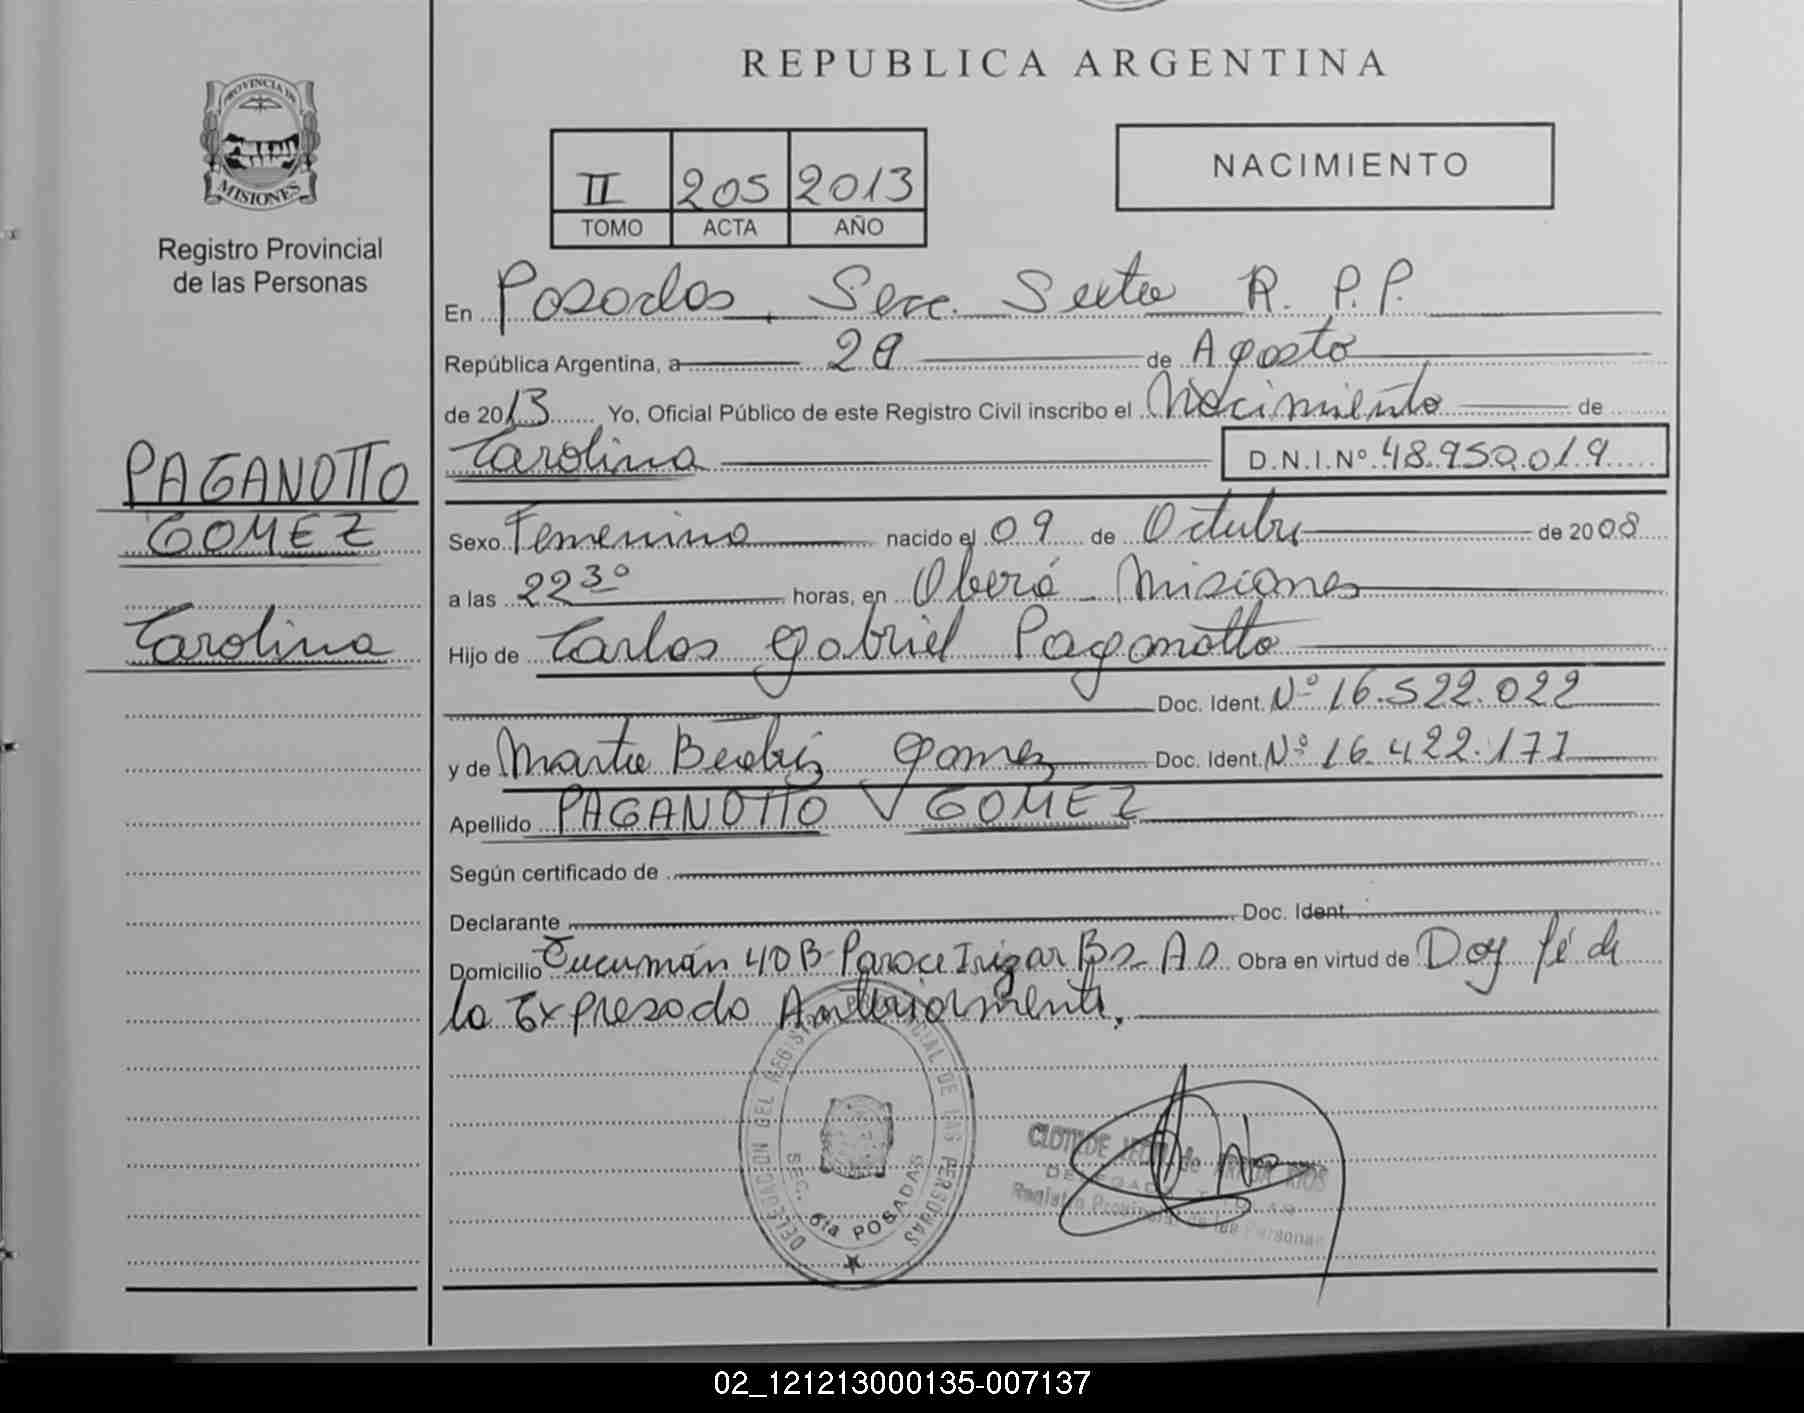 PROVINCIA DE
MISIONES
Registro Provincial
de las Personas
PAGANOTTO
GOMEZ
Carolina
REPUBLICA ARGENTINA
II 205 2013
TOMO ACTA AÑO
NACIMIENTO
En Posadas, Secc. Sexta R. P. P.
República Argentina, a 29 de Agosto
de 2013 Yo, Oficial Público de este Registro Civil inscribo el Nacimiento de
Carolina D.N.I.Nº 48.950.019
Sexo Femenino nacido el 09 de Octubre de 2008
a las 22 30 horas, en Oberá - Misiones
Hijo de Carlos Gabriel Paganotto
Doc. Ident. Nº 16.522.022
y de Marta Beatriz Gomez Doc. Ident. Nº 16.422.177
Apellido PAGANOTTO GOMEZ
Según certificado de
Declarante Doc. Ident.
Domicilio Tucumán 40 B- Irigar Bs- As Obra en virtud de Doy fé de
lo Expresado Anteriormente.
DELEGACION DEL REGISTRO PROVINCIAL DE LAS PERSONAS
SEC. 6ta POSADAS
CLOTILDE de RIOS
Registro Provincial de las Personas
02_121213000135-007137